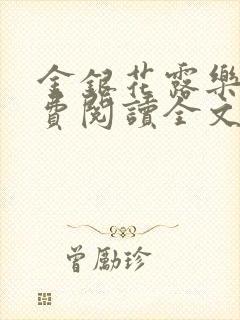 金銀花露樂
費閱讀全文
曾勵珍